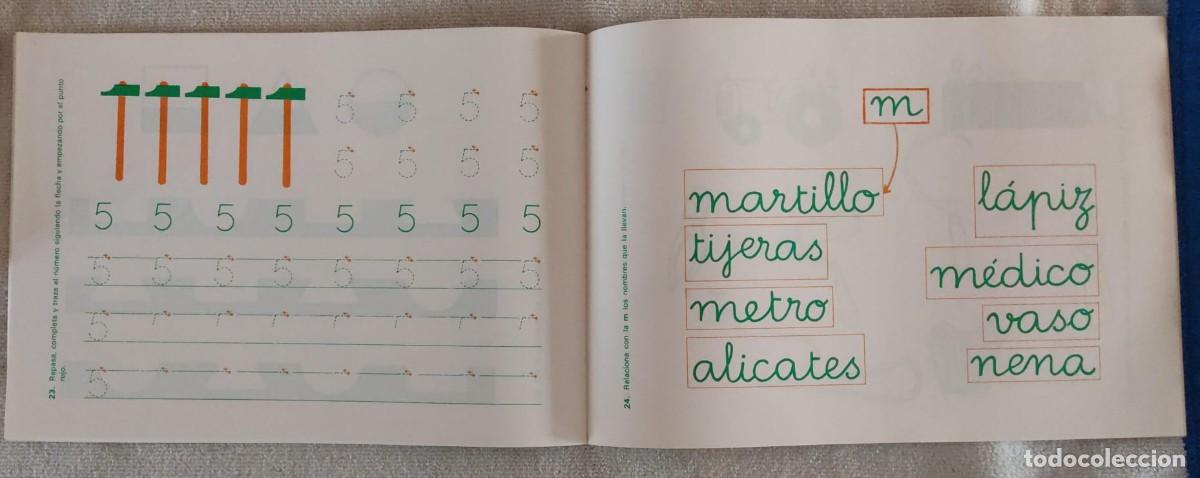 23. Repasa, completa y traza el número siguiendo la flecha y empezando por el punto
rojo.
5 5 5 5
5 5 5 5
5 5 5 5 5 5 5 5
5 5 5 5 5 5 5 5
5
5
24. Relaciona con la m los nombres que la llevan.
m
martillo
tijeras
metro
alicates
lápiz
médico
vaso
nena
todocoleccion